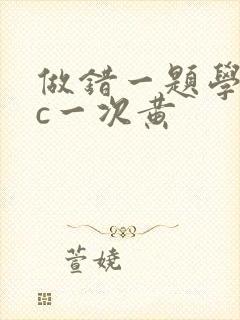 做錯一題學
c一次黃
萱嬈